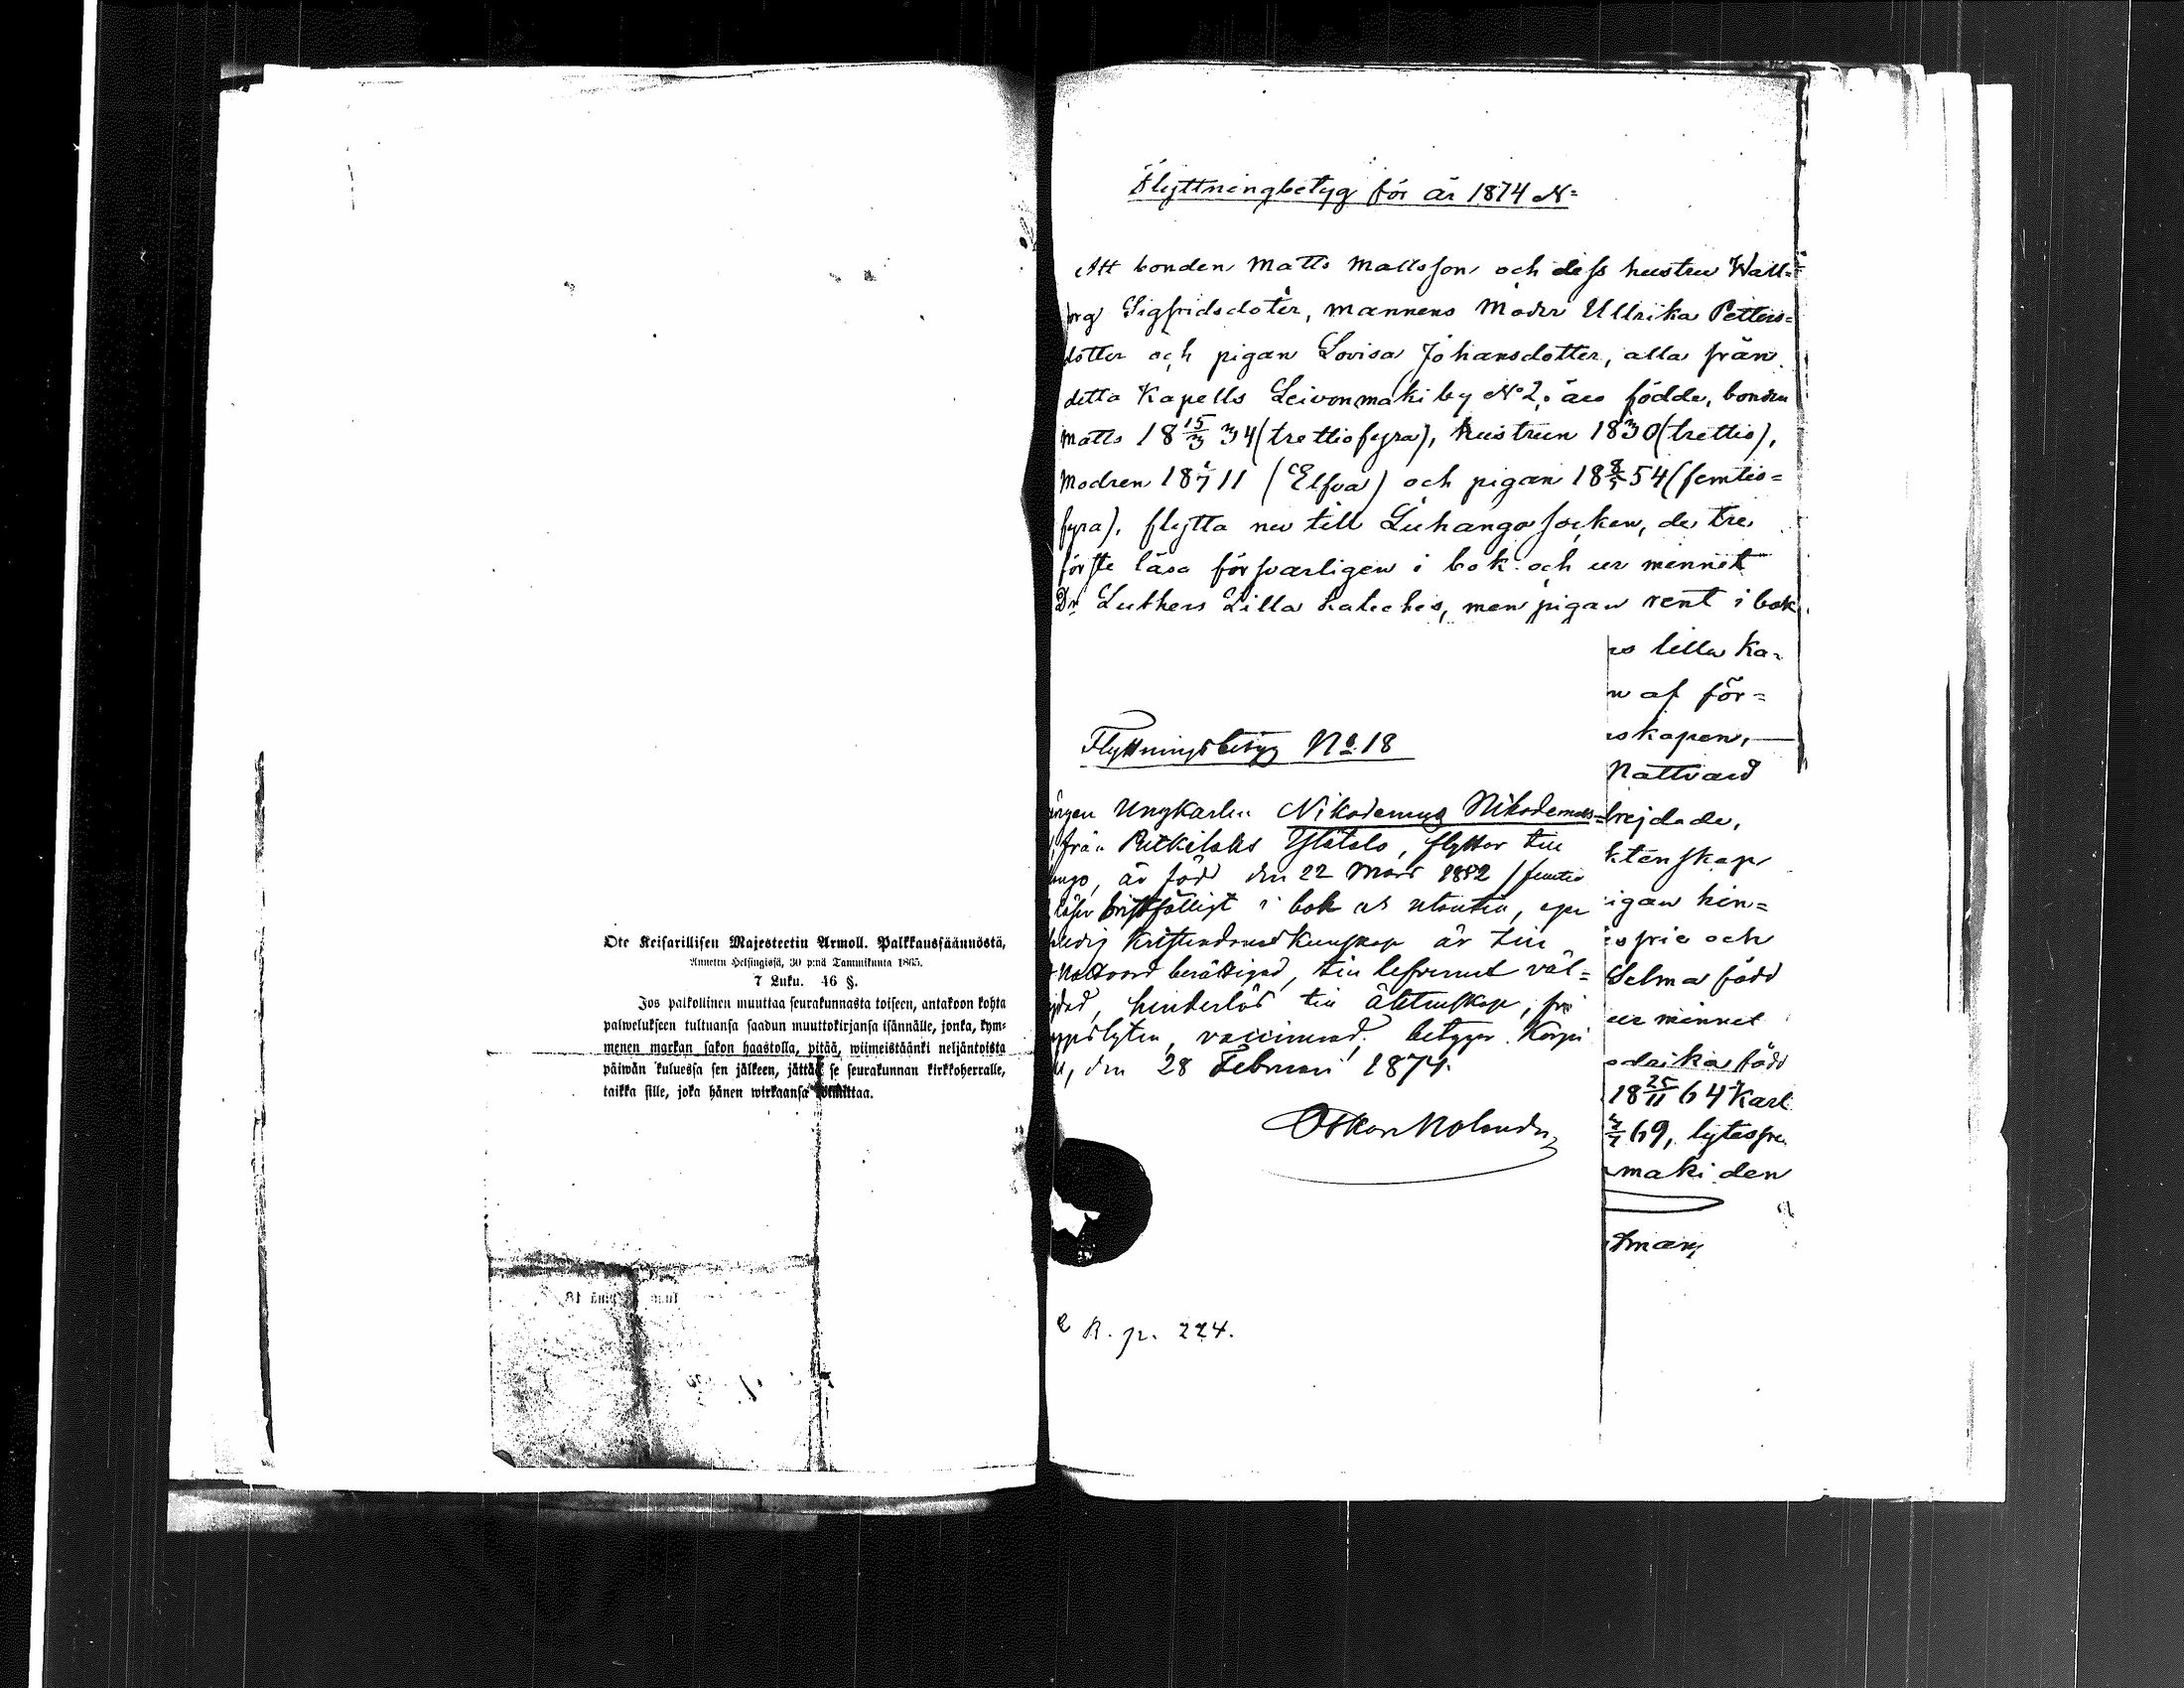 Ote Keisarillisen Majesteetin Armoll. Palkkaussäännöstä,
Annettu Helsingissä, 30 p:nä Tammikuuta 1865.
7 Luku. 46 §.
Jos palkollinen muuttaa seurakunnasta toiseen, antakoon kohta
palwelukseen tultuansa saadun muuttokirjansa isännälle, jonka, kym-
menen markan sakon haastolla, pitää, wiimeistäänki neljäntoista
päiwän kuluessa sen jälkeen, jättää se seurakunnan kirkkoherralle,
taikka sille, joka hänen wirkaansa toimittaa.
Flyttningbetyg för år 1874 N=
Att bonden Matts Mattsson och dess hustru Wall=
org Sigfridsdoter, mannens Moder Ullrika Petters=
dotter och pigan Lovisa Johansdotter, alla från
detta Kapells Leivonmäki by No 2, äro födde, bonden
Matts 18 15/3 34 (trettiofyra), hustrun 1830 (trettio),
Modren 18 11 (Elfva) och pigan 18 8/5 54 (femtio=
fyra), flytta nu till Luhango socken, de tre
förste läsa försvarligen i bok och ur minnet
Dr Luthers Lilla Kateches, men pigan rent i bok
rs lilla Ka-
n af för=
skapen,
Nattvard
frejdade,
ktenskap
igan hin=
sfrie och
Selma född
ur minnet
edrika född
18 25/11 64 Karl
69, lytesfri
maki den
tman
Flyttningsbetyg No 18
Ungkarlen Nikodemus Nikodemus=
från Putkilaks Ylätalo, flyttar till
ango, är född den 22 Mars 1852 (femtio
läser bristfälligt i bok och utantill, eger
Kristendomskunskap är till
Nattvard berättigad, till lefvernet väl=
jdad, hinderlös till äktenskap, fri
yppslyten, vaccinerad; betygar. Korpi
, den 28 Februari 1874.
Oskar Molander
R. p. 224.